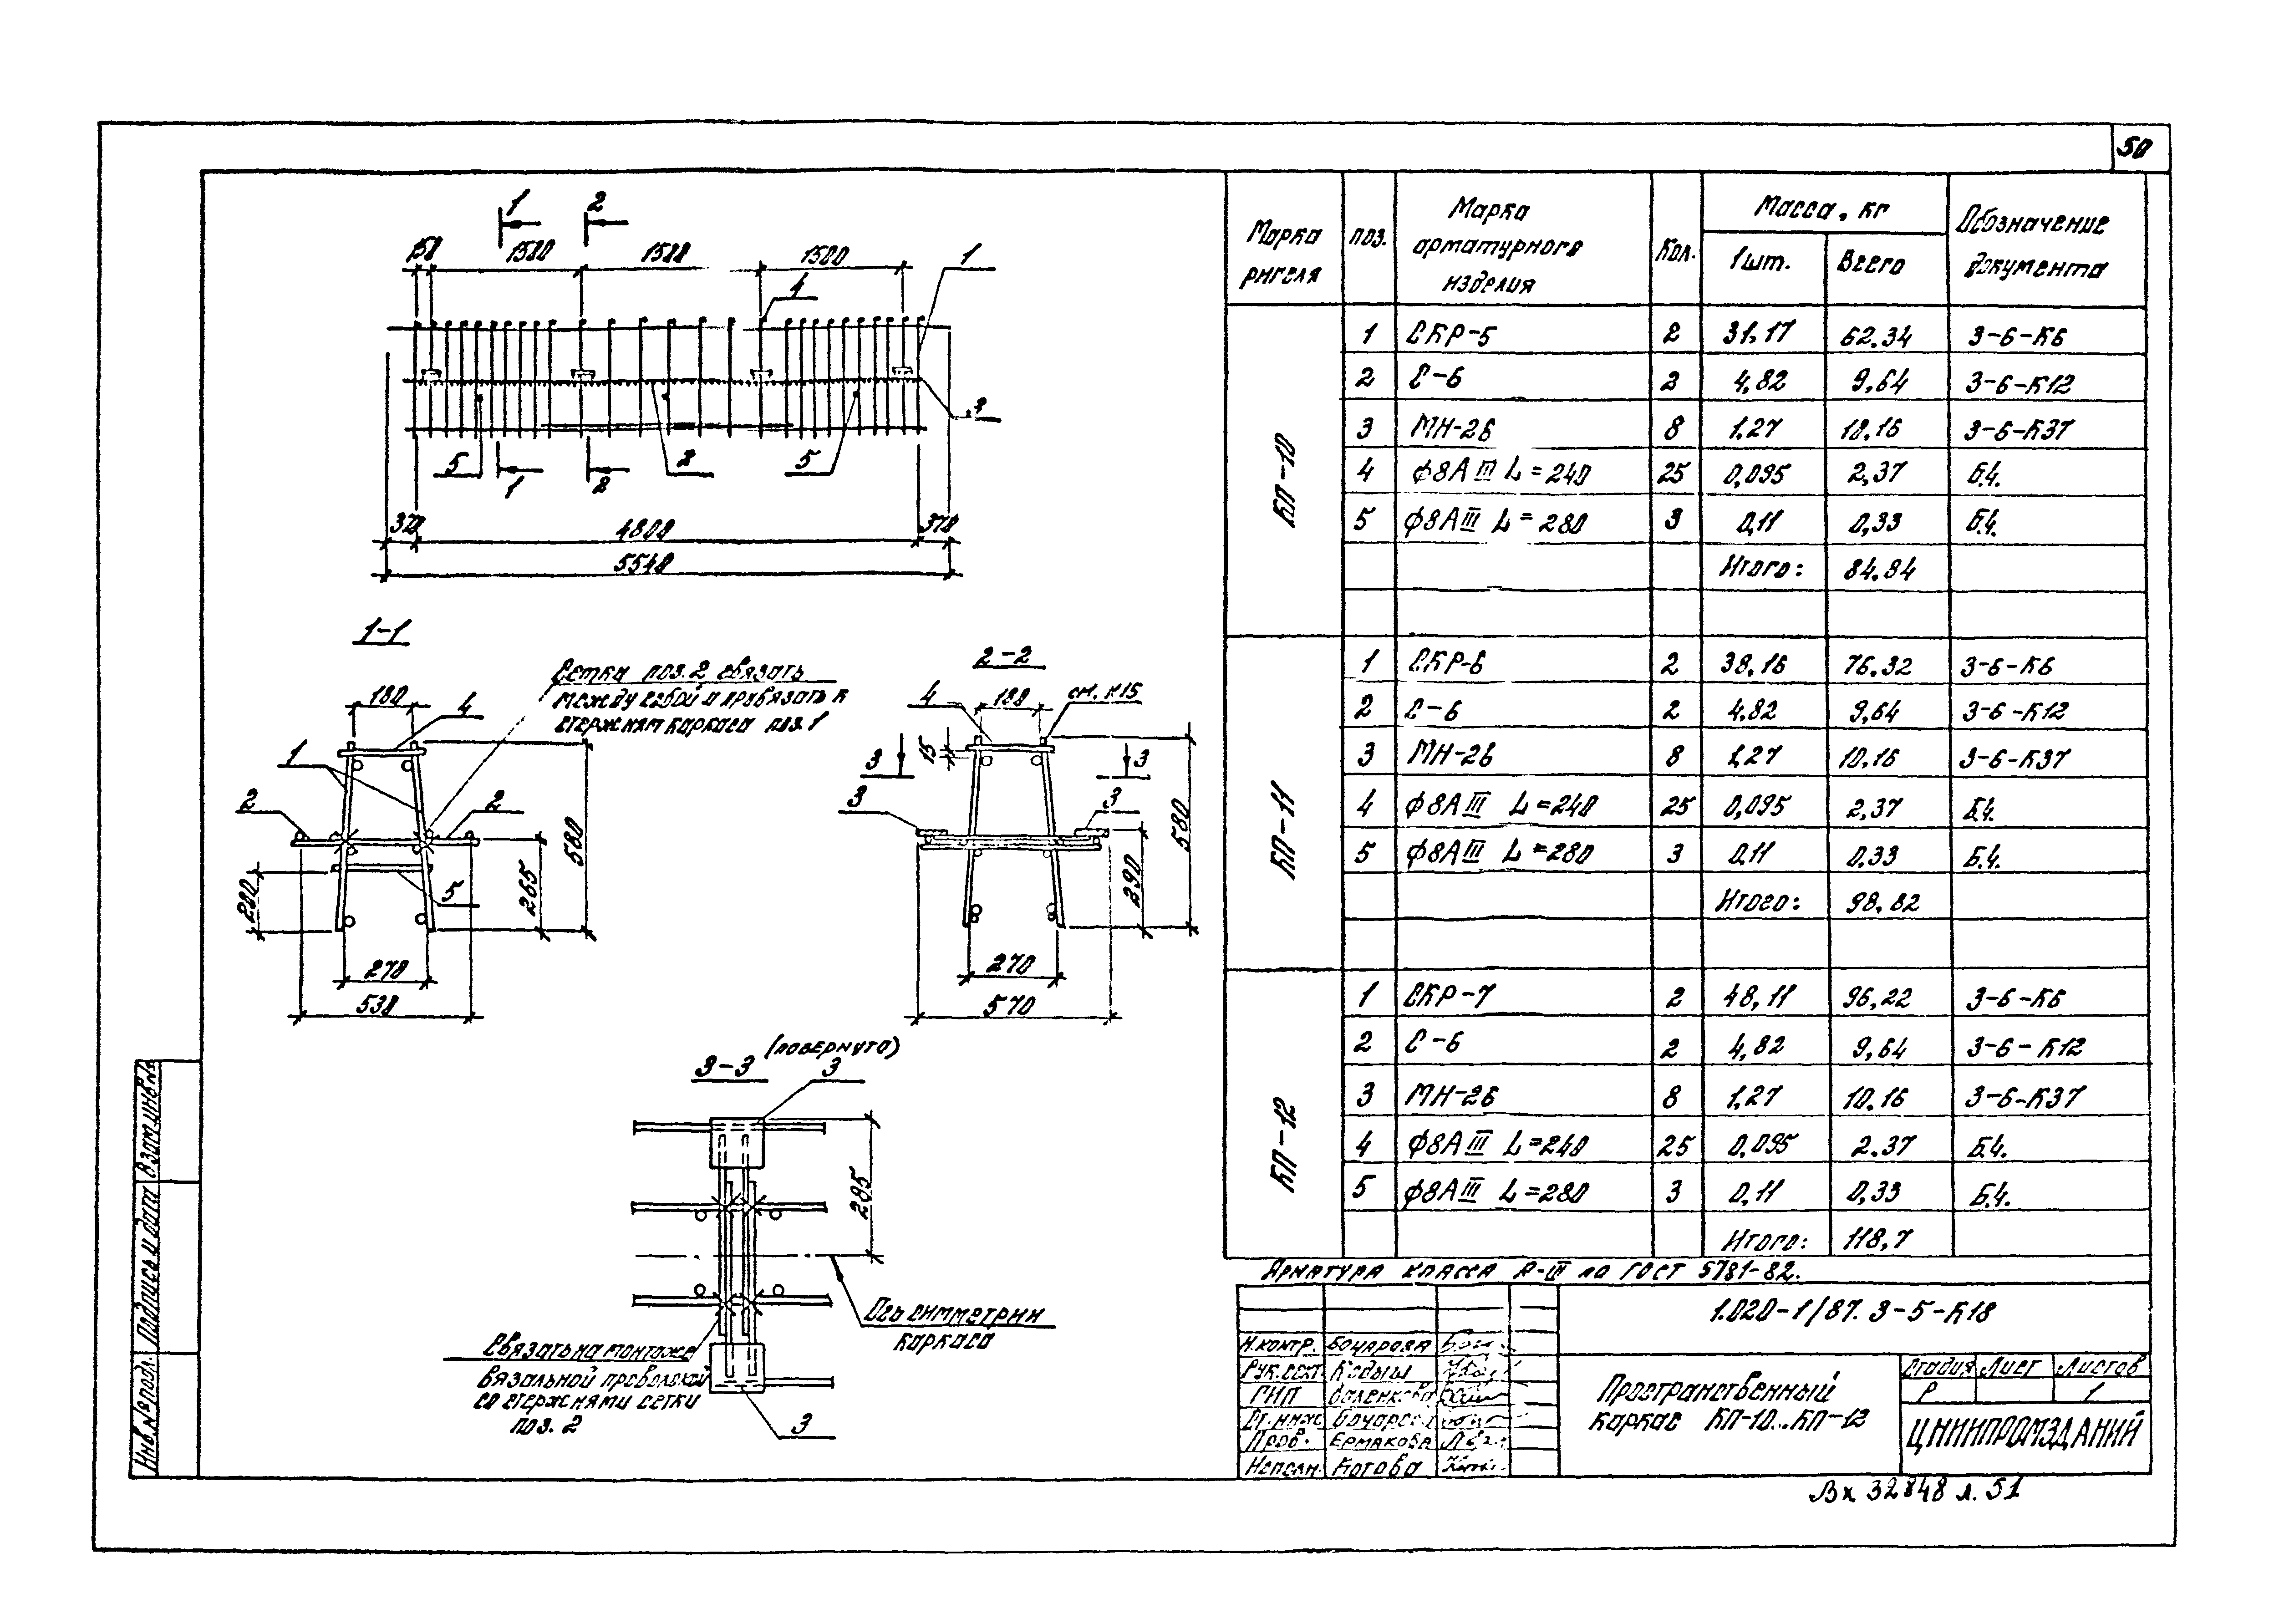 50
1 2
150 1500 1500 1500
1
4
5 2 5
1 2
370 4800 370
5540
1-1
Сетки поз. 2 связать
между собой и привязать к
стержням каркаса поз. 1
180
4
1
2 2
5
200 265 580
270
530
2-2
4 180 см. К15
15
3 3
3 3
390 580
270
570
3-3 (повернута)
3
285
Ось симметрии
каркаса
Связать на монтаже
вязальной проволокой
со стержнями сетки
поз. 2
3
Марка ригеля | поз. | Марка арматурного изделия | Кол. | Масса, кг | Обозначение документа
1 шт. | Всего
КП-10
1 СКР-5 2 31,17 62,34 3-6-К6
2 С-6 2 4,82 9,64 3-6-К12
3 МН-26 8 1,27 10,16 3-6-К37
4 ф8АIII L=240 25 0,095 2,37 Б.4.
5 ф8АIII L=280 3 0,11 0,33 Б.4.
Итого: 84,84
КП-11
1 СКР-6 2 38,16 76,32 3-6-К6
2 С-6 2 4,82 9,64 3-6-К12
3 МН-26 8 1,27 10,16 3-6-К37
4 ф8АIII L=240 25 0,095 2,37 Б.4.
5 ф8АIII L=280 3 0,11 0,33 Б.4.
Итого: 98,82
КП-12
1 СКР-7 2 48,11 96,22 3-6-К6
2 С-6 2 4,82 9,64 3-6-К12
3 МН-26 8 1,27 10,16 3-6-К37
4 ф8АIII L=240 25 0,095 2,37 Б.4.
5 ф8АIII L=280 3 0,11 0,33 Б.4.
Итого: 118,7
Арматура класса А-III по ГОСТ 5781-82.
1.020-1/87. 3-5-К18
Н.контр. Бочарова
Рук.сект. Кодыш
ГИП
Ст.инж.
Пров. Ермакова
Исполн. Котова
Пространственный
каркас КП-10...КП-12
Стадия Лист Листов
Р 1
ЦНИИПРОМЗДАНИЙ
Вх 32848 л. 51
Взам.инв.№
Подпись и дата
Инв.№ подл.